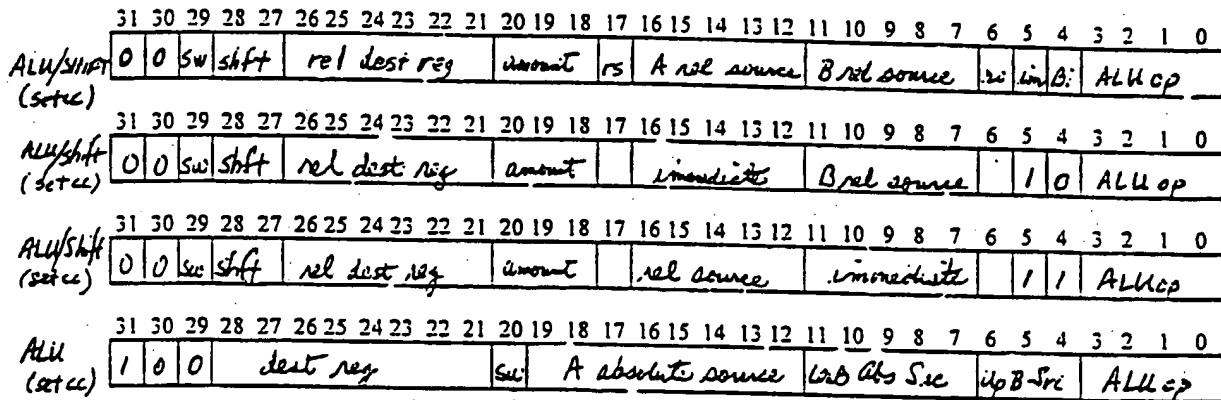 31 30 29 28 27 26 25 24 23 22 21 20 19 18 17 16 15 14 13 12 11 10 9 8 7 6 5 4 3 2 1 0
ALU/SHIFT 0 0 sw shft rel dest reg amount rs A rel source B rel source im Bi ALU op
(setcc)
31 30 29 28 27 26 25 24 23 22 21 20 19 18 17 16 15 14 13 12 11 10 9 8 7 6 5 4 3 2 1 0
ALU/shft 0 0 sw shft rel dest reg amount immediate B rel source 1 0 ALU op
(setcc)
31 30 29 28 27 26 25 24 23 22 21 20 19 18 17 16 15 14 13 12 11 10 9 8 7 6 5 4 3 2 1 0
ALU/Shift 0 0 sw shft rel dest reg amount rel source immediate 1 1 ALU op
(setcc)
31 30 29 28 27 26 25 24 23 22 21 20 19 18 17 16 15 14 13 12 11 10 9 8 7 6 5 4 3 2 1 0
ALU 1 0 0 dest reg sw A absolute source B Abs Src ALU op
(setcc)